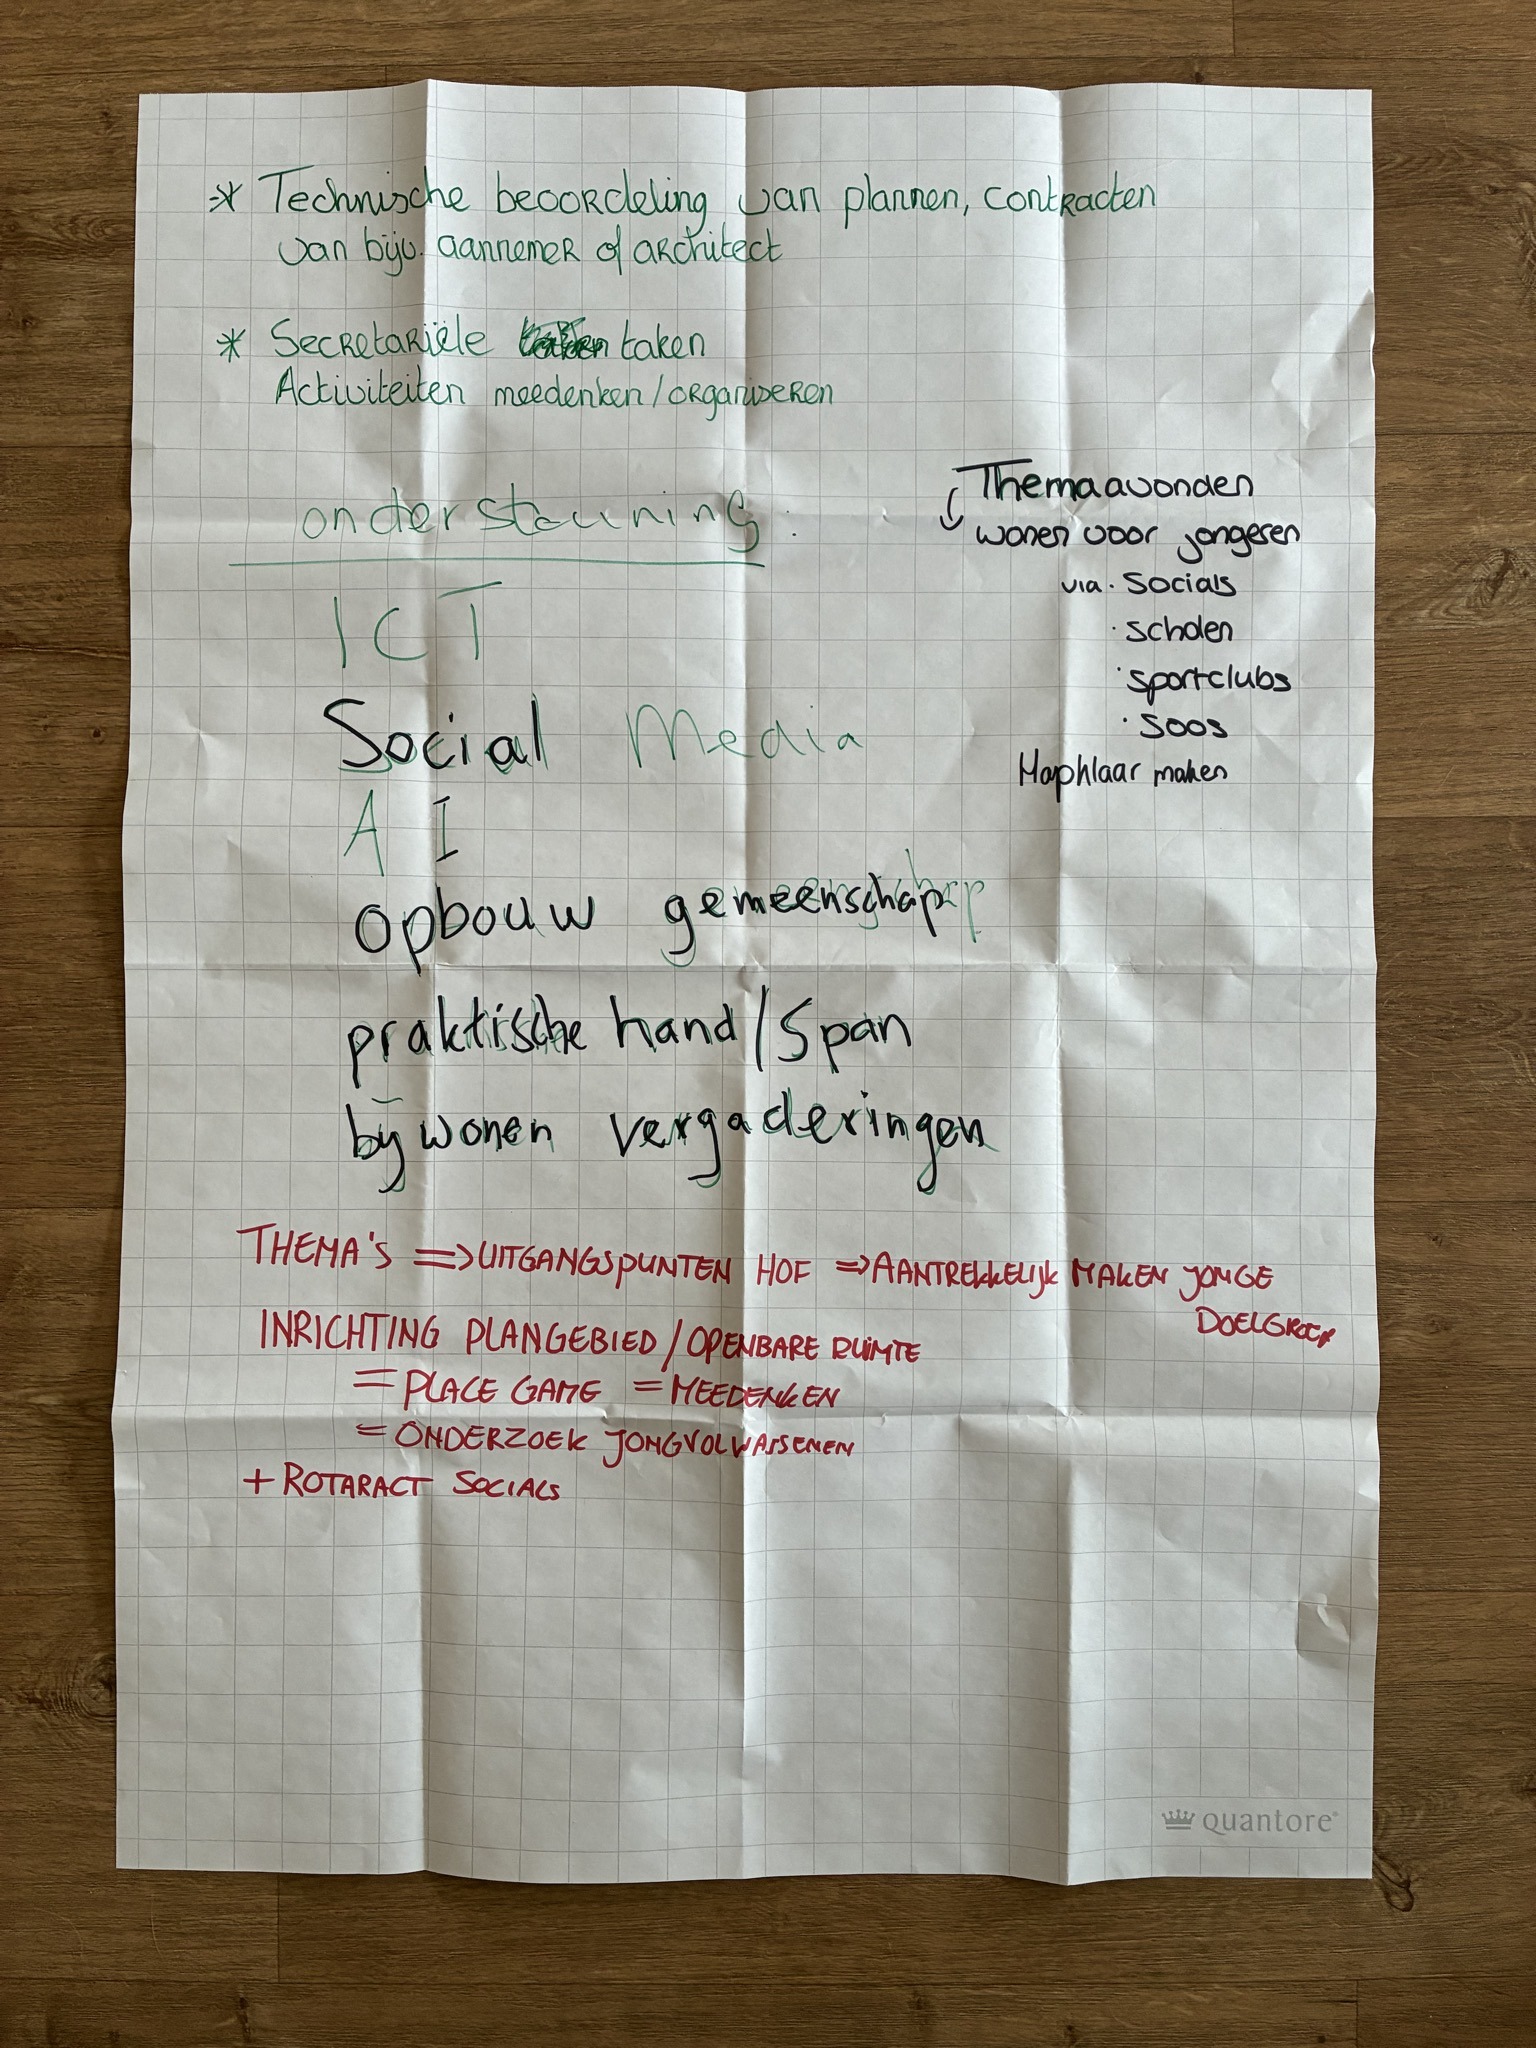 * Technische beoordeling van plannen, contracten
van bijv. aannemer of architect
* Secretariële taken
Activiteiten meedenken/organiseren
ondersteuning:
ICT
Social Media
AI
opbouw gemeenschap
praktische hand/span
bijwonen vergaderingen
Themaavonden
wonen voor jongeren
via · Socials
· scholen
· sportclubs
· soos
Haphlaar maken
THEMA'S => UITGANGSPUNTEN HOF => AANTREKKELIJK MAKEN JONGE
DOELGROEP
INRICHTING PLANGEBIED/OPENBARE RUIMTE
= PLACE GAME = MEEDENKEN
= ONDERZOEK JONGVOLWASSENEN
+ ROTARACT SOCIALS
quantore